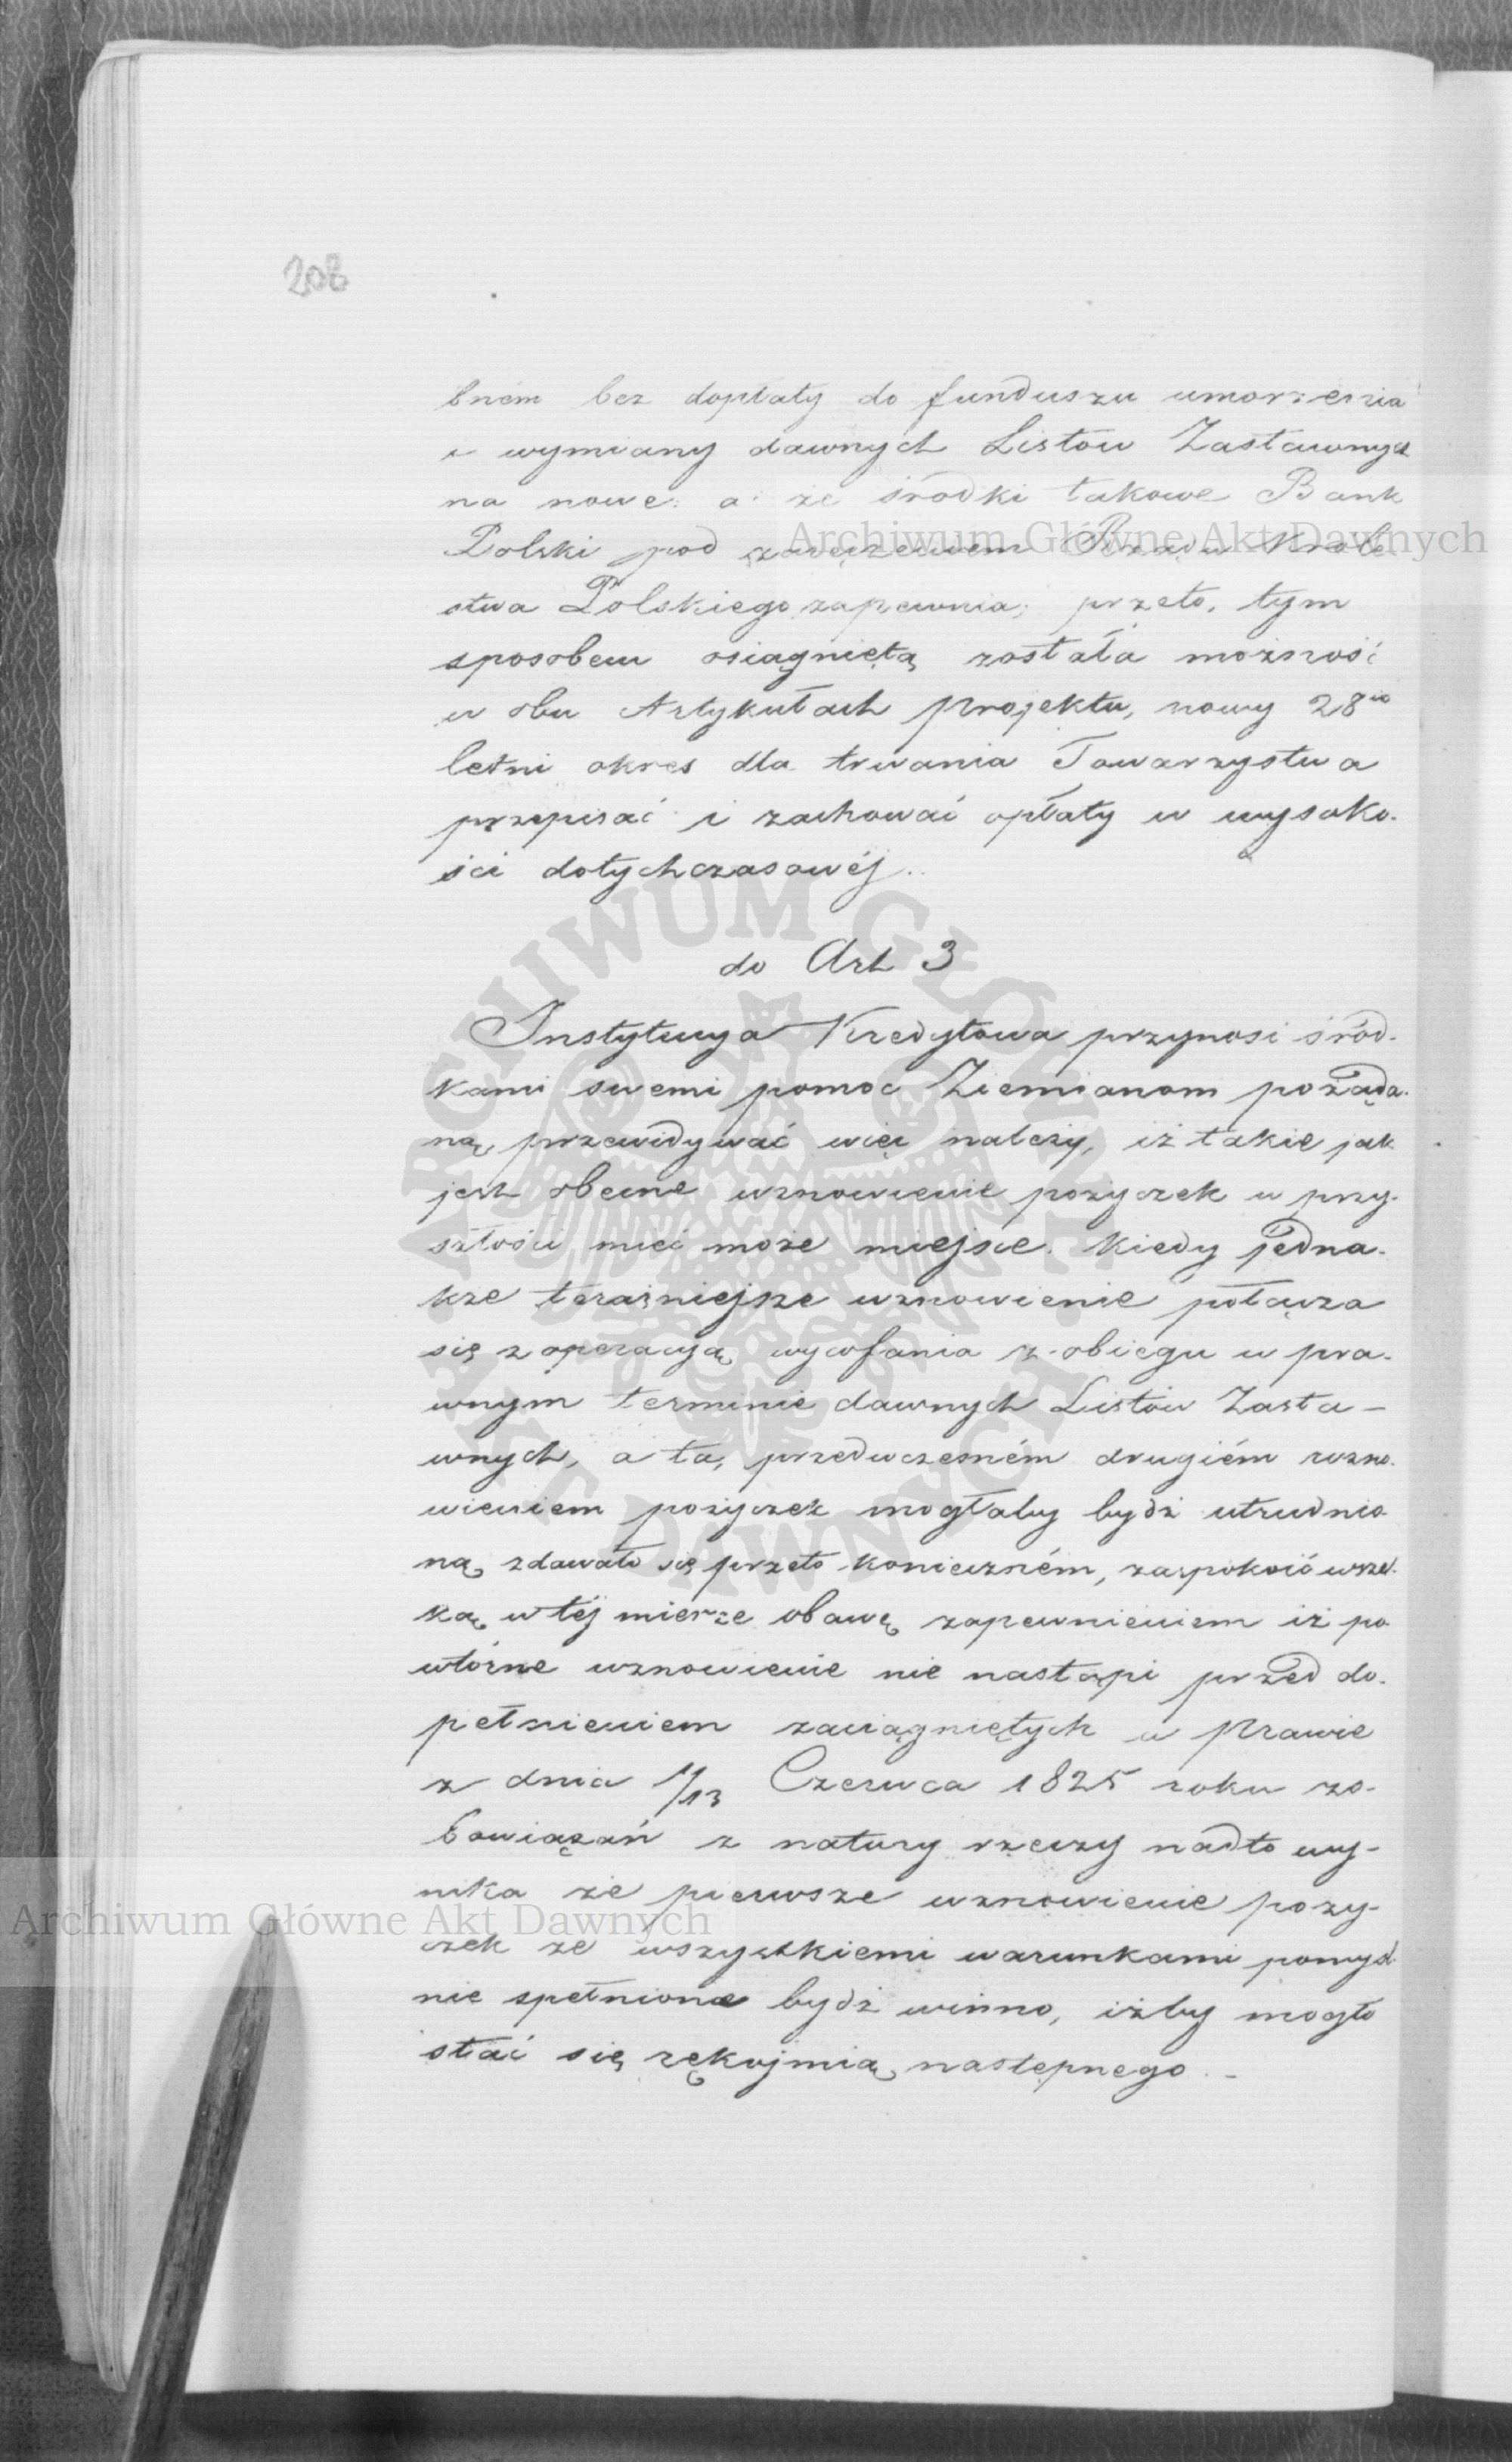 208
bném bez dopłaty do funduszu umorzenia
i wymiany dawnych Listów Zastawnych
na nowe: a że środki takowe Bank
Polski pod zaręczeniem Rządu Króle
stwa Polskiego zapewnia; przeto, tym
sposobem osiągniętą została możność
w obu Artykułach projektu, nowy 28io
letni okres dla trwania Towarzystwa
przepisać i zachować opłaty w wysoko-
ści dotychczasowéj..
do Art 3
Instytucya Kredytowa przynosi środ-
kami swemi pomoc Ziemianom pożąda-
ną, przewidywać więc należy, iż takie jak
jest obecne wznowienie pożyczek w przy-
szłości mieć może miejsce. Kiedy jedna-
kże teraźniejsze wznowienie połącza
się z operacyą wycofania z obiegu w pra-
wnym terminie dawnych Listów Zasta-
wnych, a ta, przedwczesném drugiém wzno-
wieniem pożyczek mogłaby bydź utrudnio-
ną, zdawało się przeto konieczném, zaspokoić wszel-
ką w téj mierze obawę zapewnieniem iż po-
wtórne wznowienie nie nastąpi przed do-
pełnieniem zaciągniętych w prawie
z dnia 1/13 Czerwca 1825 roku zo-
bowiązań z natury rzeczy nadto wy-
nika że pierwsze wznowienie poży-
czek ze wszystkiemi warunkami pomyśl-
nie spełnione bydź winno, iżby mogło
stać się rękojmią następnego. -
Archiwum Główne Akt Dawnych
Archiwum Główne Akt Dawnych
ARCHIWUM GŁÓWNE AKT DAWNYCH